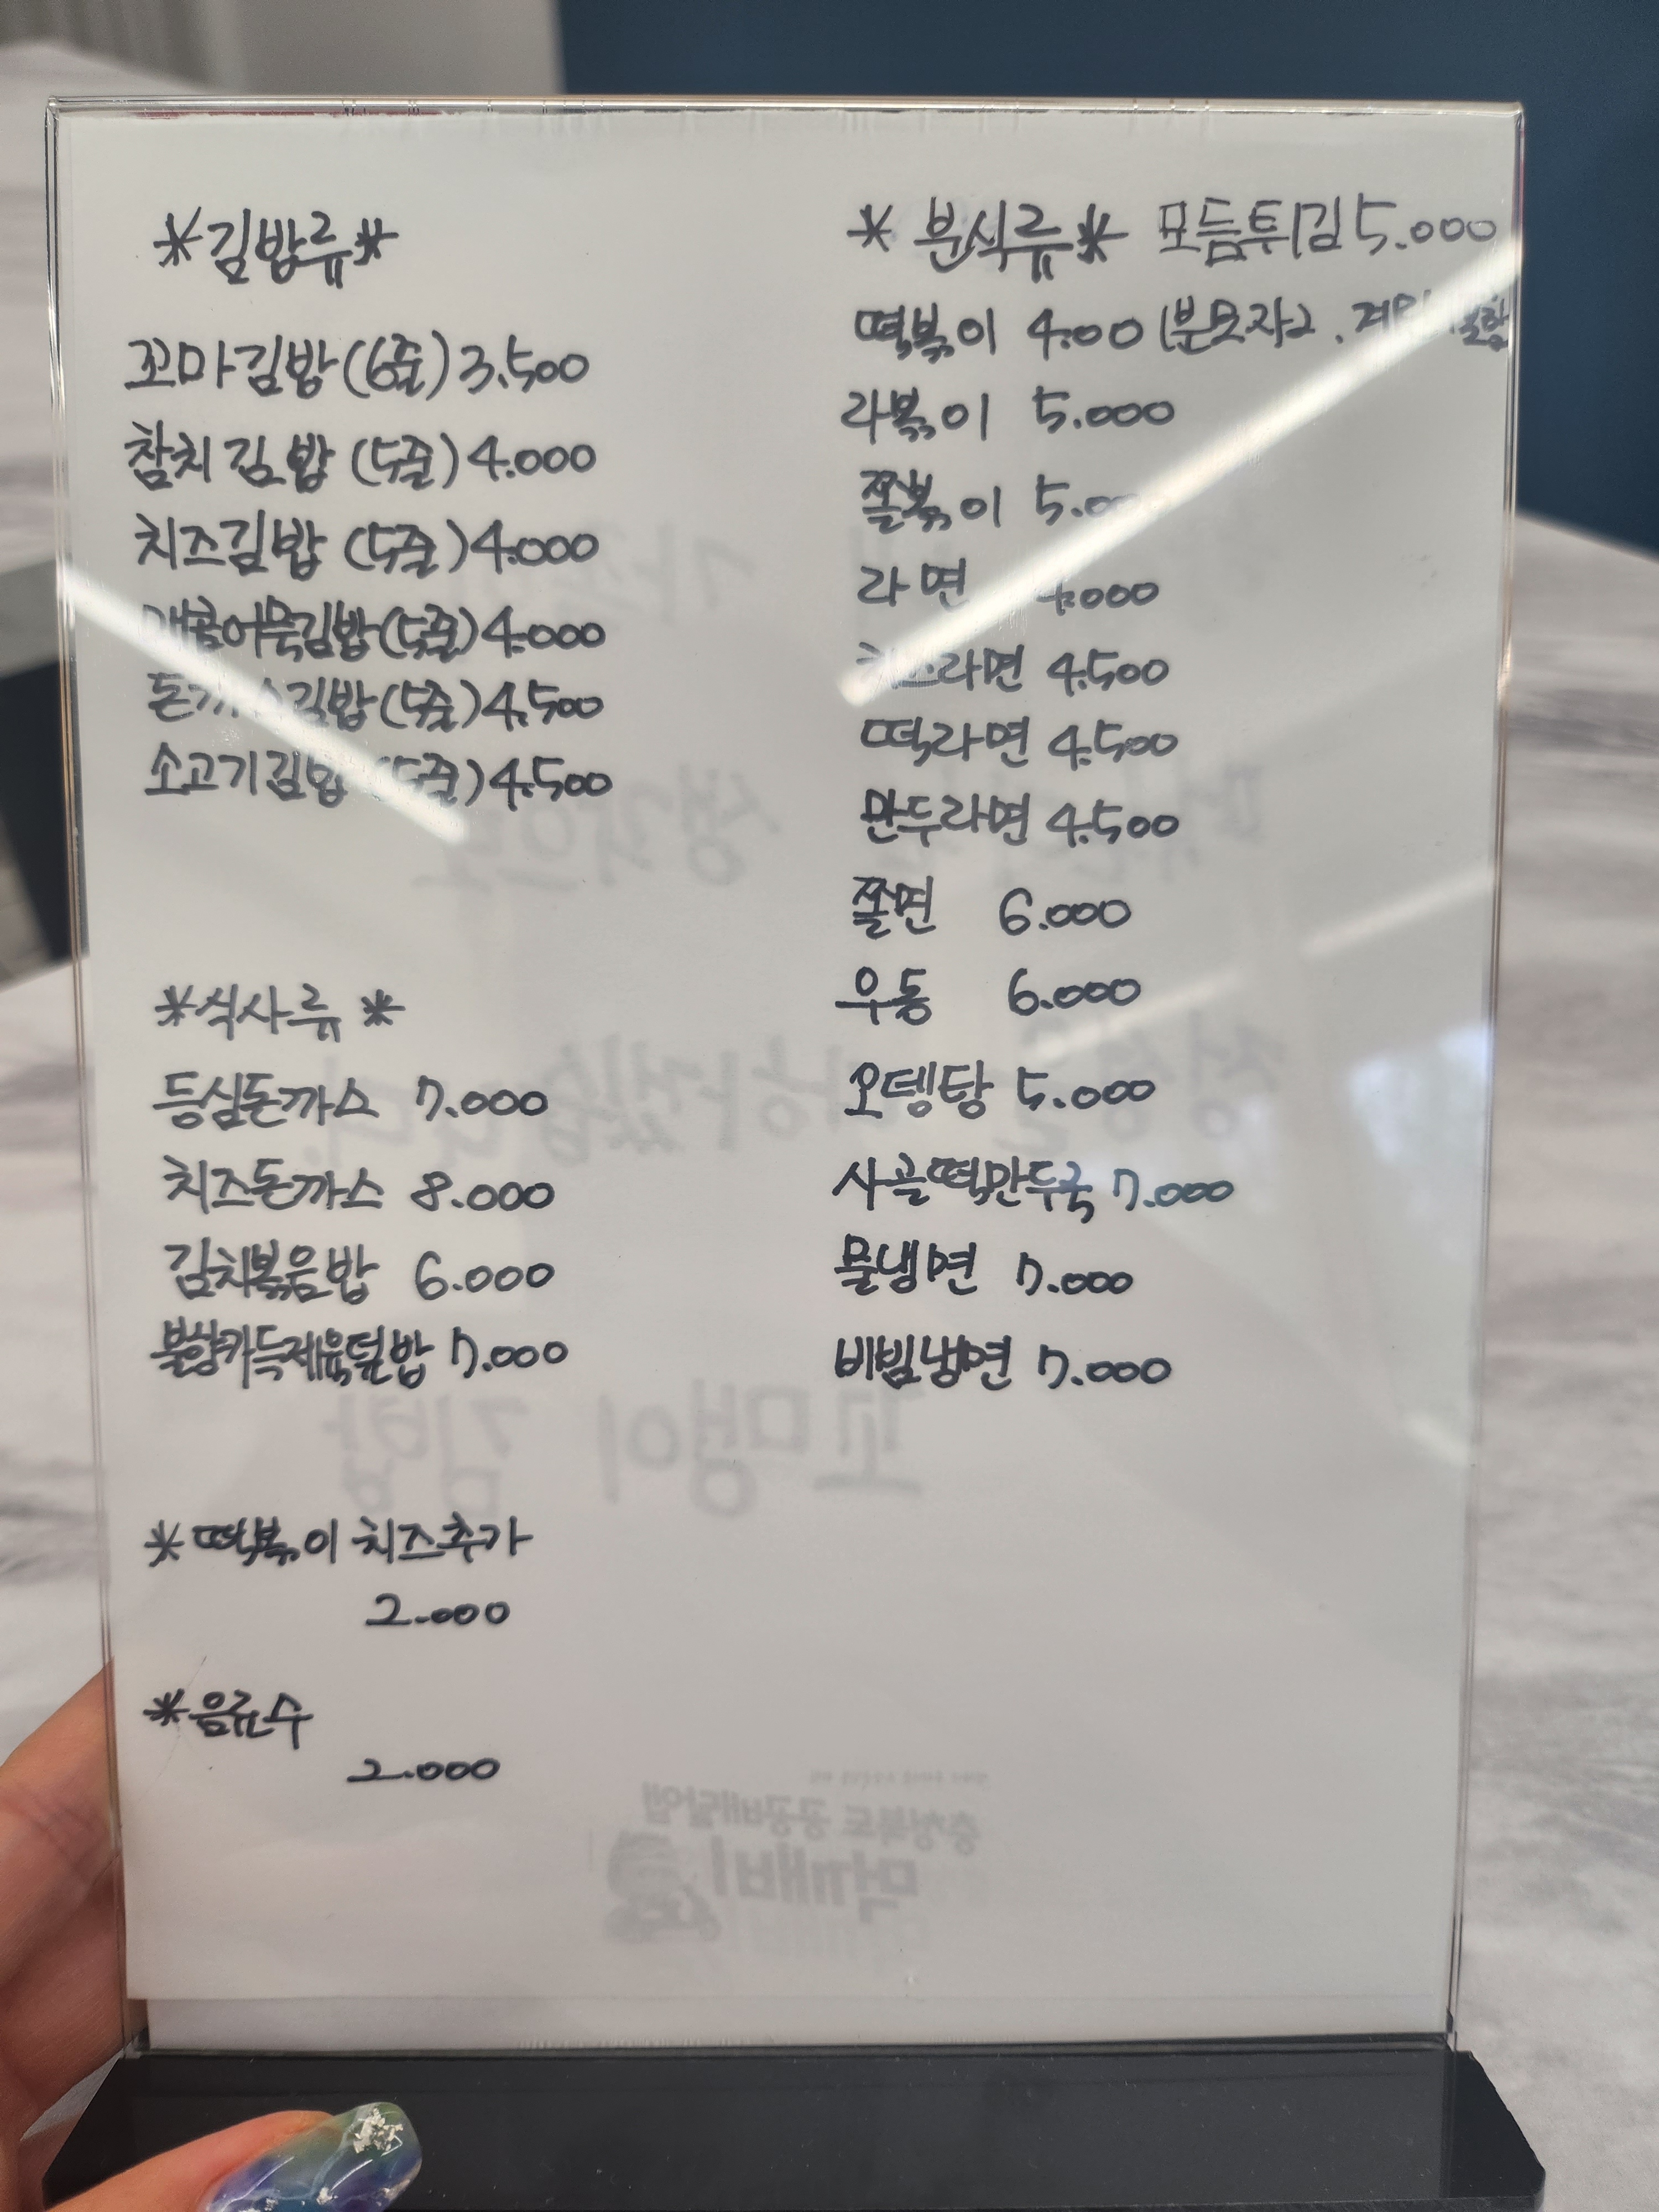 *김밥류*
꼬마김밥(6줄) 3.500
참치김밥(5줄) 4.000
치즈김밥(5줄) 4.000
어묵김밥(5줄) 4.000
돈까스김밥(5줄) 4.500
소고기김밥(5줄) 4.500
*식사류*
등심돈까스 7.000
치즈돈까스 8.000
김치볶음밥 6.000
불향가득제육덮밥 7.000
*떡볶이 치즈추가
2.000
*음료수
2.000
*분식류* 모듬튀김 5.000
떡볶이 4.00 (분모자2.
라볶이 5.000
쫄볶이 5.00
라면 4.000
치즈라면 4.500
떡라면 4.500
만두라면 4.500
쫄면 6.000
우동 6.000
오뎅탕 5.000
사골떡만두국 7.000
물냉면 7.000
비빔냉면 7.000
꼬맹이 김밥
충청북도 공공배달앱
먹깨비